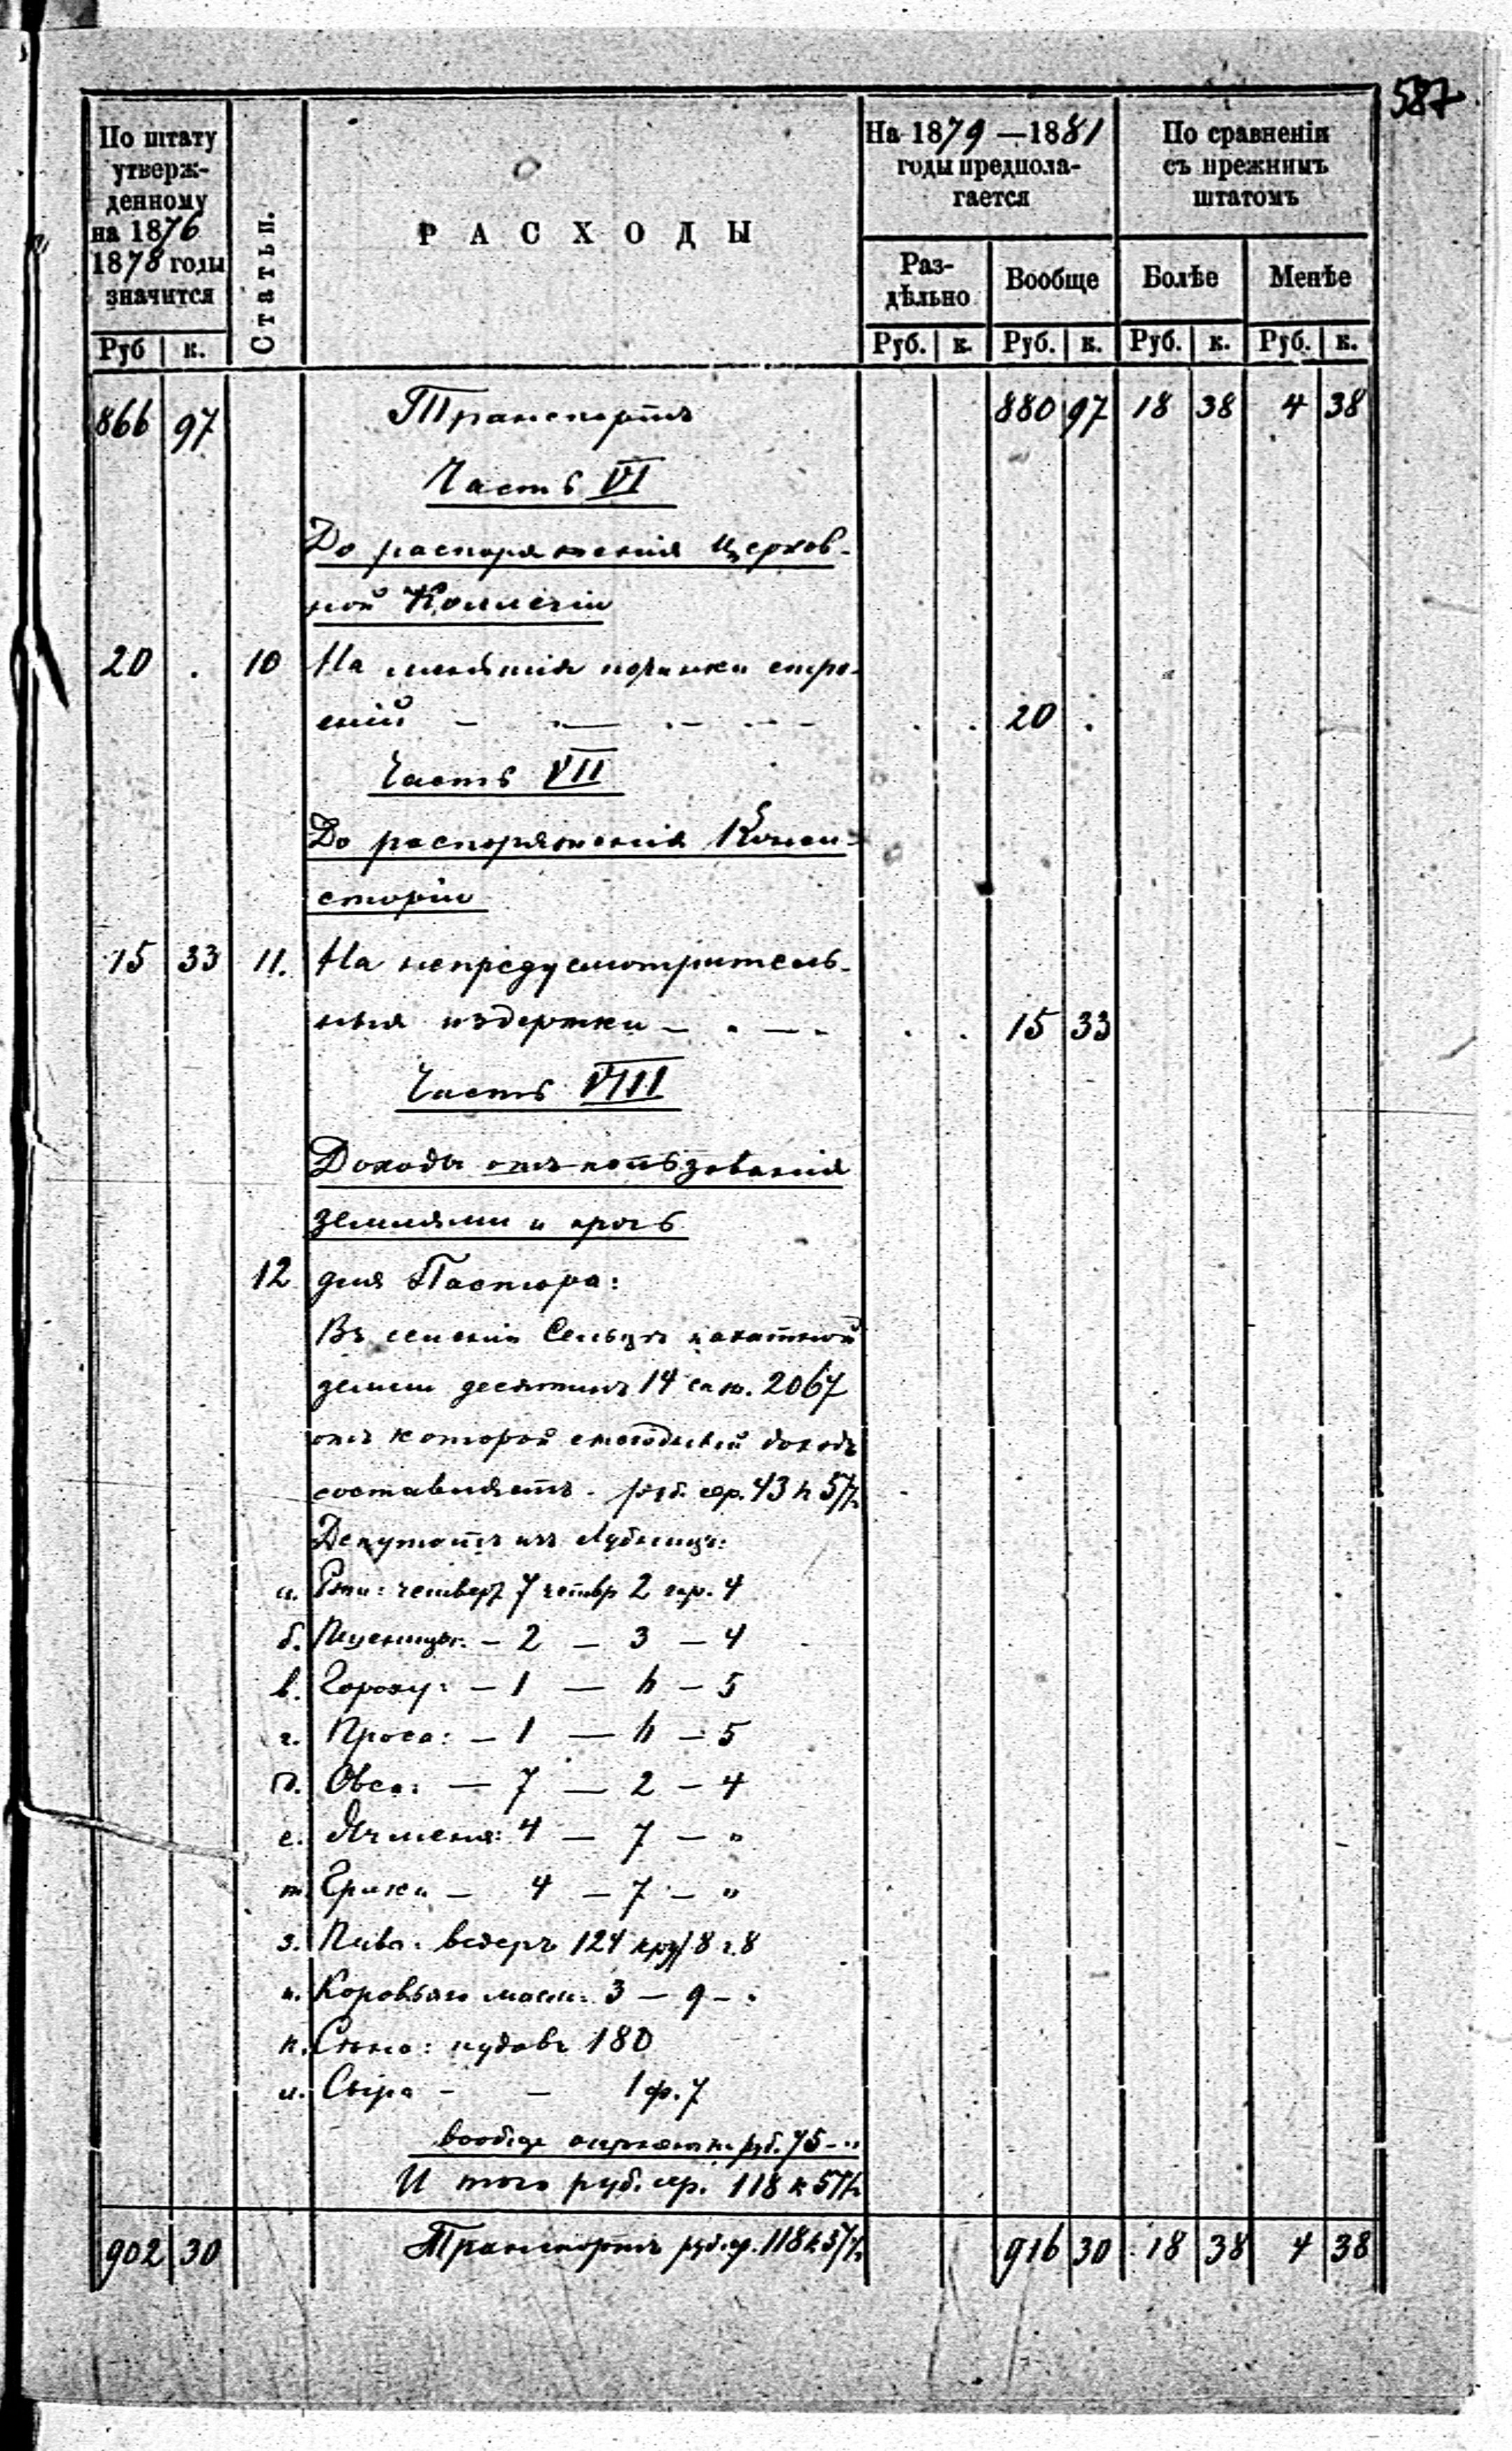 587
По штату
утверж-
денному
на 1876
1878 годы
значится
Статьи.
РАСХОДЫ
На 1879 — 1881
годы предпола-
гается
По сравненія
съ прежнимъ
штатомъ
Раз-
дѣльно
Вообще
Болѣе
Менѣе
Руб к. Руб. к. Руб. к. Руб. к. Руб. к.
866 97 Транспортъ 880 97 18 38 4 38
Часть VI
До распоряженія Церков-
ной Коллегіи
20 . 10 На мелкія починки стро-
еній — — — — . . 20 .
Часть VII
До распоряженія Конси-
сторіи
15 33 11. На непредусмотритель-
ныя издержки — . — . . . 15 33
Часть VIII
Доходы отъ пользованія
землями и проч
12 для Пастора:
Въ селеніи Сельцъ пахатной
земли десятинъ 14 саж. 2067
отъ которой ежегодный доходъ
составляетъ - руб. сер. 43 к 57½
Депутатъ изъ
а. Ржи: четверт 7 четвр 2 гар. 4
б. Пшеницы: — 2 — 3 — 4
в. Гороху: — 1 — h — 5
г. Проса: — 1 — h — 5
д. Овса: — 7 — 2 — 4
е. Ячменя: 4 — 7 — "
ж Грики — 4 — 7 — "
з. Пива: ведеръ 124 круж 8 г. 8
и. Коровьяго масла: 3 — 9 — .
к. Сѣна: пудовъ 180
л. Сыра - - 1 ф. 7
вообще руб. 75 - "
И того руб. сер. 118 к 57½
902 30 Транспортъ руб. ср. 118 к 57½ 916 30 18 38 4 38